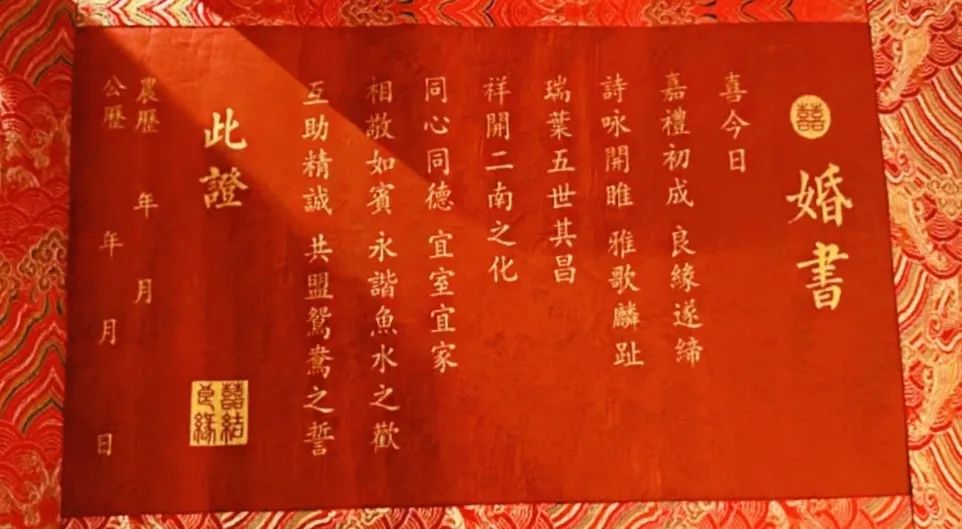 囍
婚書
喜今日
嘉禮初成 良緣遂締
詩咏開雎 雅歌麟趾
瑞葉五世其昌
祥開二南之化
同心同德 宜室宜家
相敬如賓 永諧魚水之歡
互助精誠 共盟鴛鴦之誓
此證
囍結
良緣
農歷 年 月
公歷 年 月 日